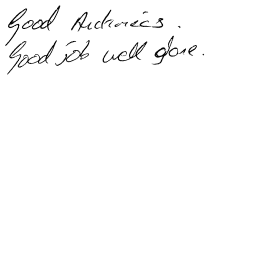 Good
Good job well done.